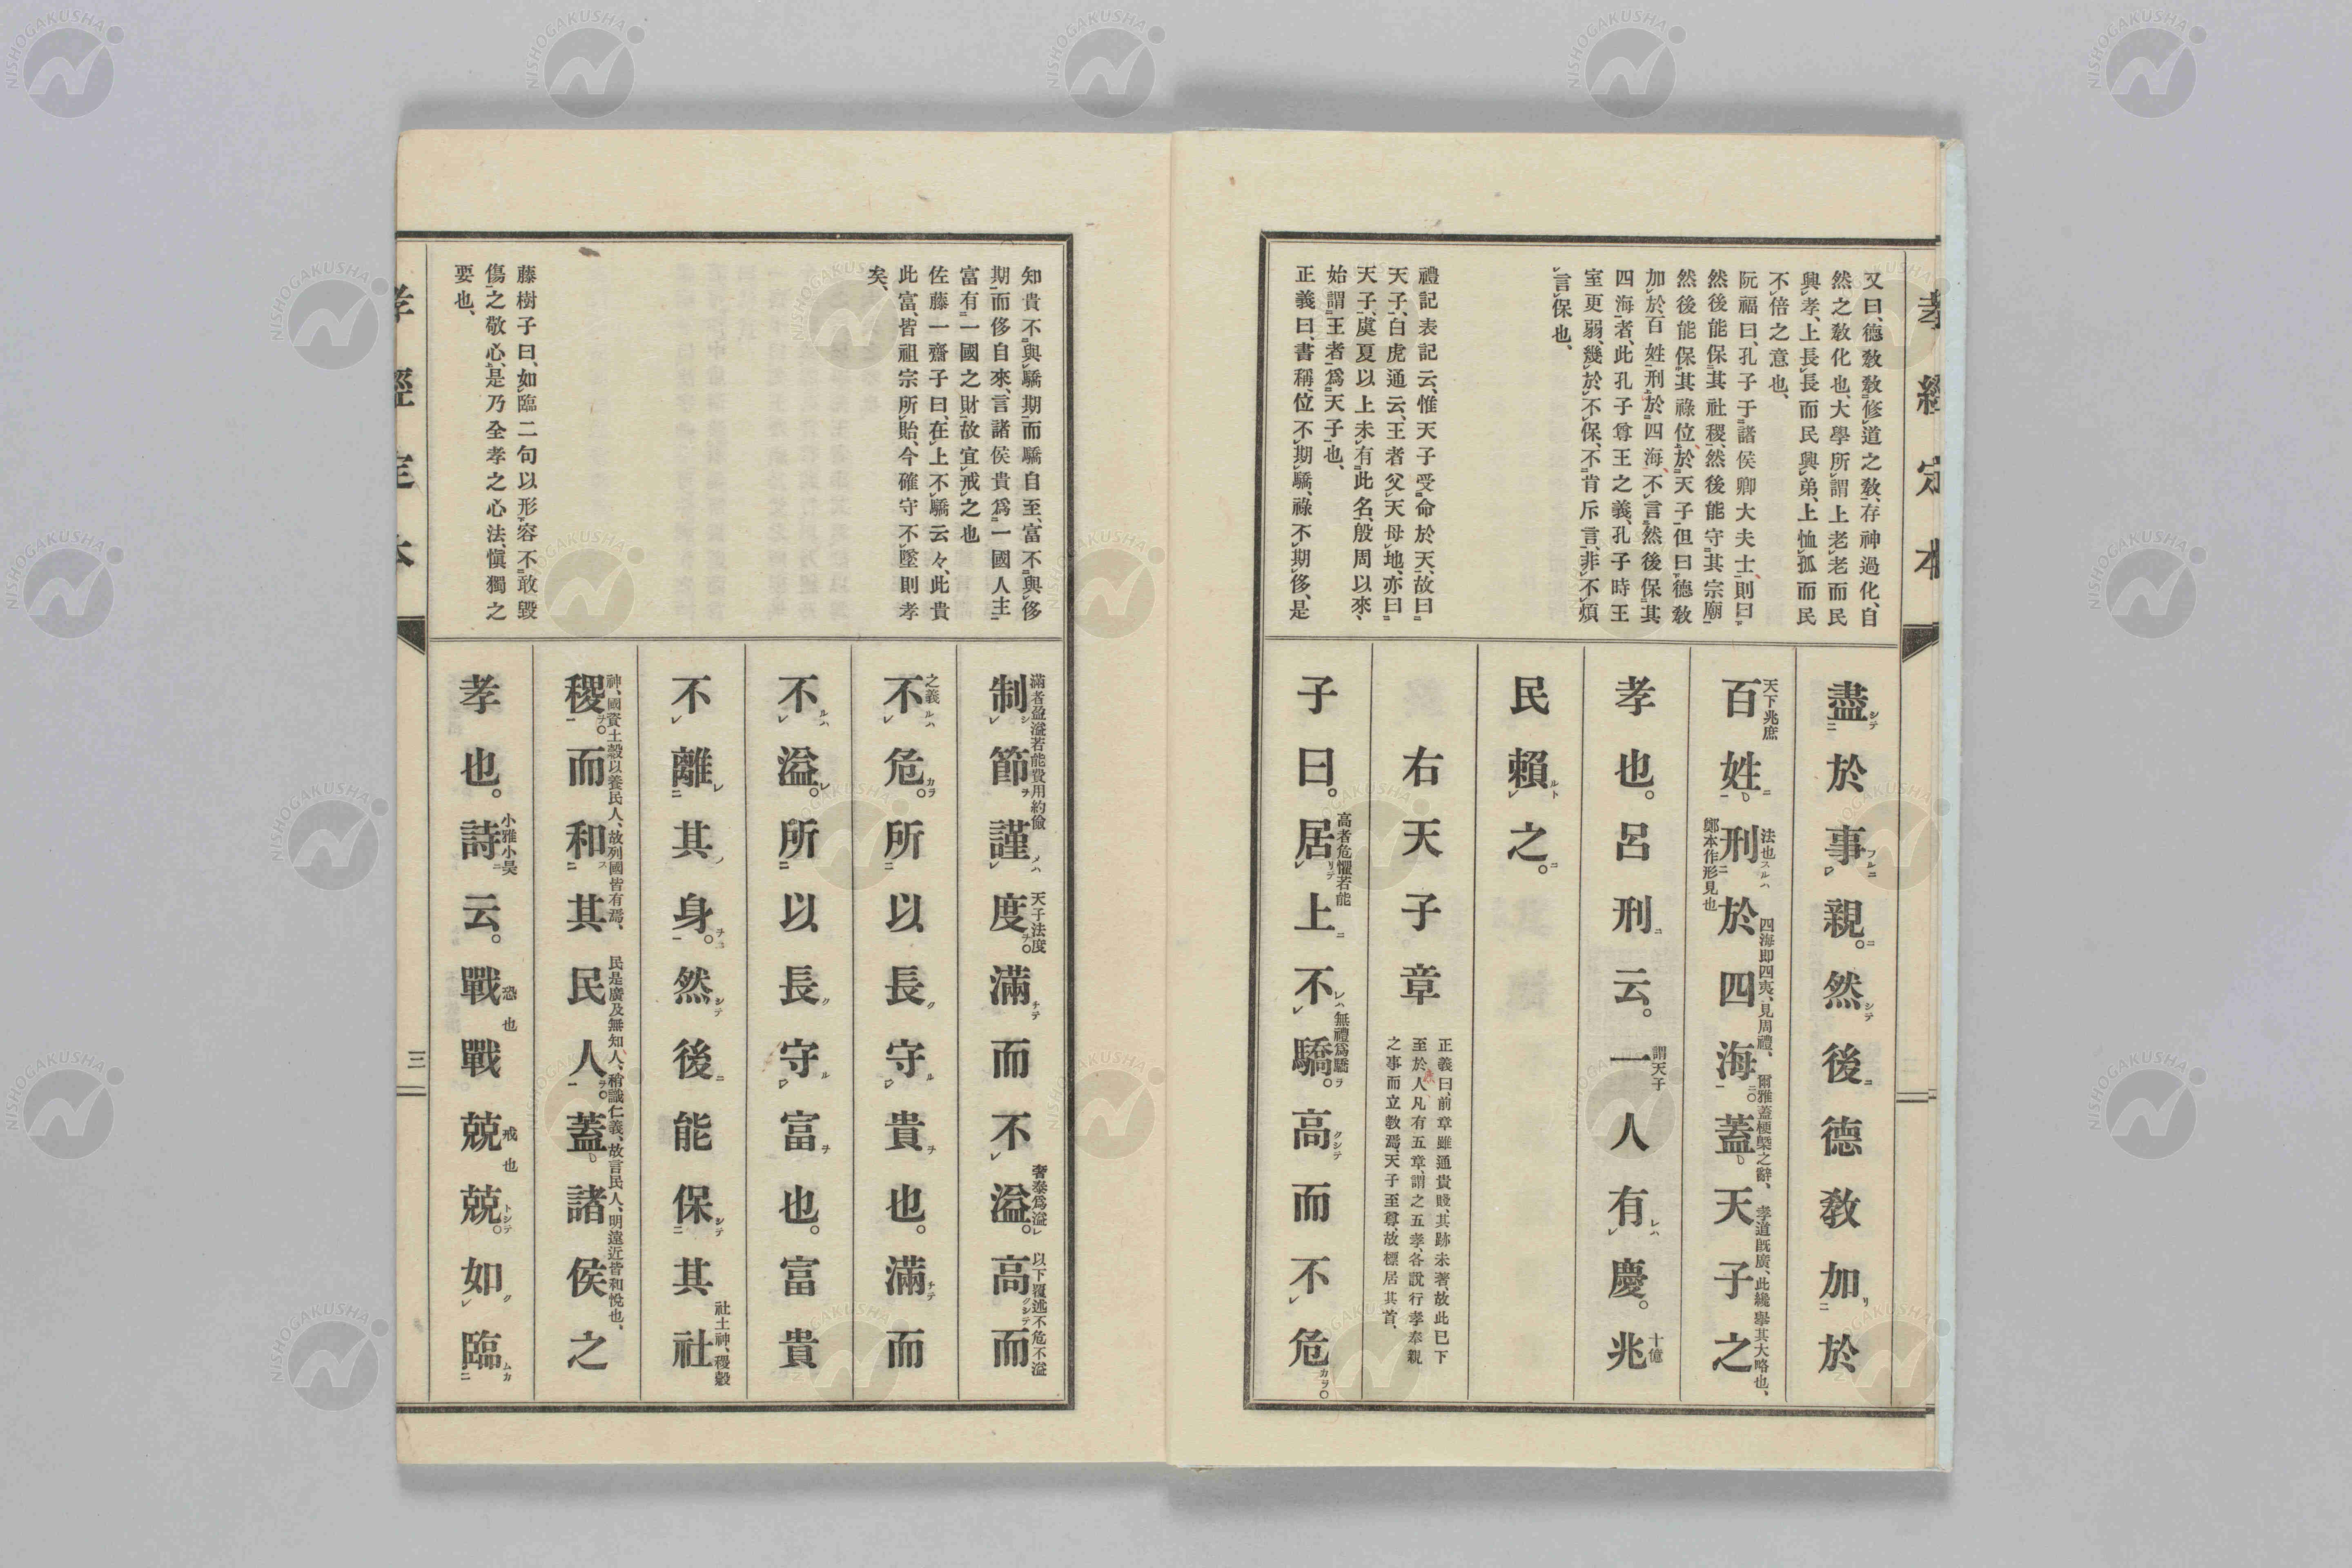 又曰、德敎敎修道之敎、存神過化、自
然之敎化也、大學所謂上老老而民
興孝、上長長而民興弟、上恤孤而民
不倍之意也、
阮福曰、孔子于諸侯卿大夫士、則曰
然後能保其社稷、然後能守其宗廟、
然後能保其祿位、於天子但曰德敎
加於百姓、刑於四海、不言然後保其
四海者、此孔子尊王之義、孔子時王
室更弱、幾於不保、不肯斥言、非不煩
言保也、
禮記表記云、惟天子受命於天、故曰
天子、白虎通云、王者父天母地、亦曰
天子、虞夏以上未有此名、殷周以來、
始謂王者爲天子也、
正義曰、書稱、位不期驕、祿不期侈、是
盡シテ二於事フルニレ親ニ。然シテ後ニ德敎加リ二於
天下兆庶
百姓ニ一刑於四海ニ一。蓋天子之
法也スルハ
鄭本作形見也
四海即四夷、見周禮、
爾雅蓋梗槩之辭、
孝道既廣、此纔擧其大略也、
孝也。呂刑ニ云。一人有レハレ慶。兆
謂天子
十億
民賴ルトレ之ニ。
右天子章
正義曰、前章雖通貴賤、其跡未著、故此已下
至於人凡有五章、謂之五孝、各說行孝奉親
之事而立敎焉、天子至尊、故標居其首、
子曰。居リテレ上ニ不レハレ驕ヲ。高クシテ而不レ危カラ。
高者危懼若能
無禮爲驕
知貴不與驕期而驕自至、富不與侈
期而侈自來、言諸侯貴爲一國人主、
富有一國之財、故宜戒之也
佐藤一齋子曰、在上不驕云々、此貴
此富、皆祖宗所貽、今確守不墜則孝
矣、
藤樹子曰、如臨二句以形容不敢毀
傷之敬心、是乃全孝之心法、愼獨之
要也、
制シレ節ヲ謹メハレ度ヲ。滿チテ而不レ溢レ。高クシテ而
滿者盈溢若能費用約儉
天子法度
奢泰爲溢
以下覆述不危不溢
之義
不ルハレ危カラ。所二以長ク守ルレ貴ヲ也。滿チテ而
不ルハレ溢レ。所二以長ク守ルレ富ヲ也。富貴
不レ離レ二其ノ身ニ一。然シテ後ニ能保シテ二其社
社土神、稷穀
神、國資土穀以養民人、故列國皆有焉、
稷ヲ一。而和ス二其民人ヲ一。蓋諸侯之
民是廣及無知人、稍識仁義、故言民人、明遠近皆和悅也、
孝也。詩ニ云。戰戰兢兢トシテ。如クレ臨ムカ二
小雅小旻
恐也
戒也
孝經定本
三
孝經定本
NISHOGAKUSHA